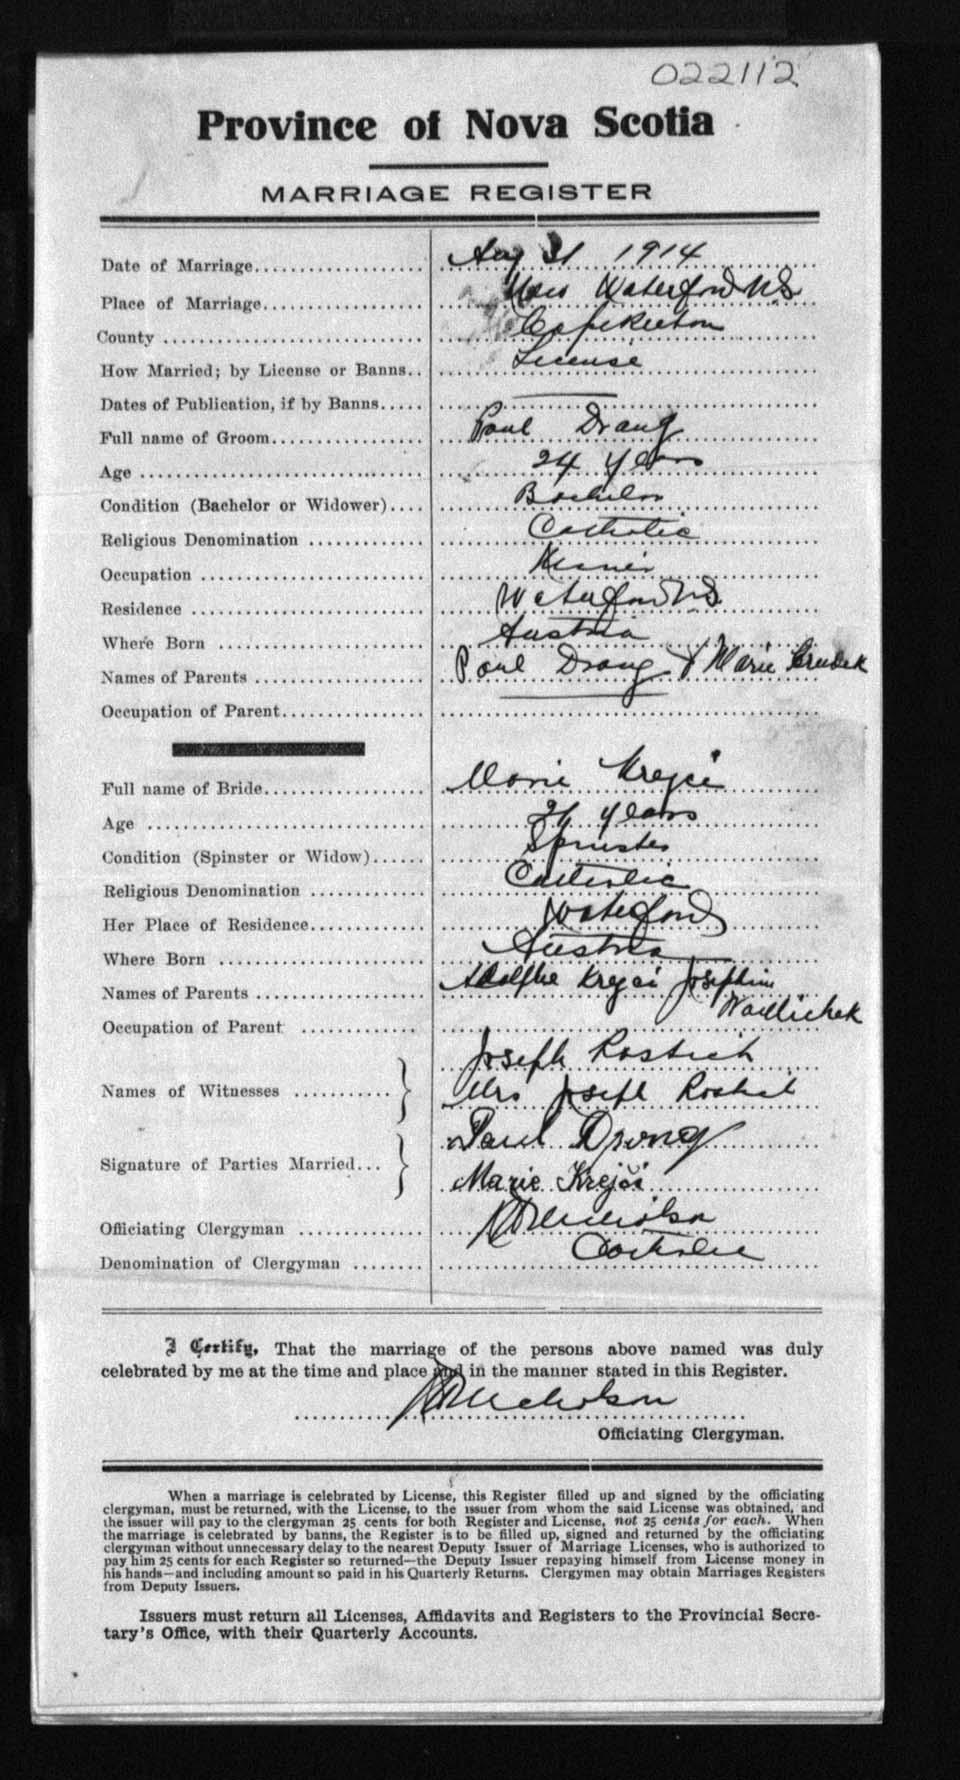 022112
Province of Nova Scotia
MARRIAGE REGISTER
Date of Marriage Aug 31 1914
Place of Marriage New Waterford N S
County Cape Breton
How Married; by License or Banns License
Dates of Publication, if by Banns
Full name of Groom Paul Drang
Age 24 years
Condition (Bachelor or Widower) Bachelor
Religious Denomination Catholic
Occupation
Residence Waterford N.S.
Where Born Austria
Names of Parents Paul Drang & Marie
Occupation of Parent
Full name of Bride Marie Krejci
Age years
Condition (Spinster or Widow) Spinster
Religious Denomination Catholic
Her Place of Residence Waterford
Where Born Austria
Names of Parents Adolphe Krejci Josephine
Occupation of Parent
Names of Witnesses Joseph Rostich
Mrs Joseph Rostich
Signature of Parties Married Paul Drong
Marie Krejčí
Officiating Clergyman Nicholson
Denomination of Clergyman Catholic
I Certify, That the marriage of the persons above named was duly
celebrated by me at the time and place and in the manner stated in this Register.
Nicholson
Officiating Clergyman.
When a marriage is celebrated by License, this Register filled up and signed by the officiating
clergyman, must be returned, with the License, to the issuer from whom the said License was obtained, and
the issuer will pay to the clergyman 25 cents for both Register and License, not 25 cents for each. When
the marriage is celebrated by banns, the Register is to be filled up, signed and returned by the officiating
clergyman without unnecessary delay to the nearest Deputy Issuer of Marriage Licenses, who is authorized to
pay him 25 cents for each Register so returned—the Deputy Issuer repaying himself from License money in
his hands—and including amount so paid in his Quarterly Returns. Clergymen may obtain Marriages Registers
from Deputy Issuers.
Issuers must return all Licenses, Affidavits and Registers to the Provincial Secre-
tary's Office, with their Quarterly Accounts.